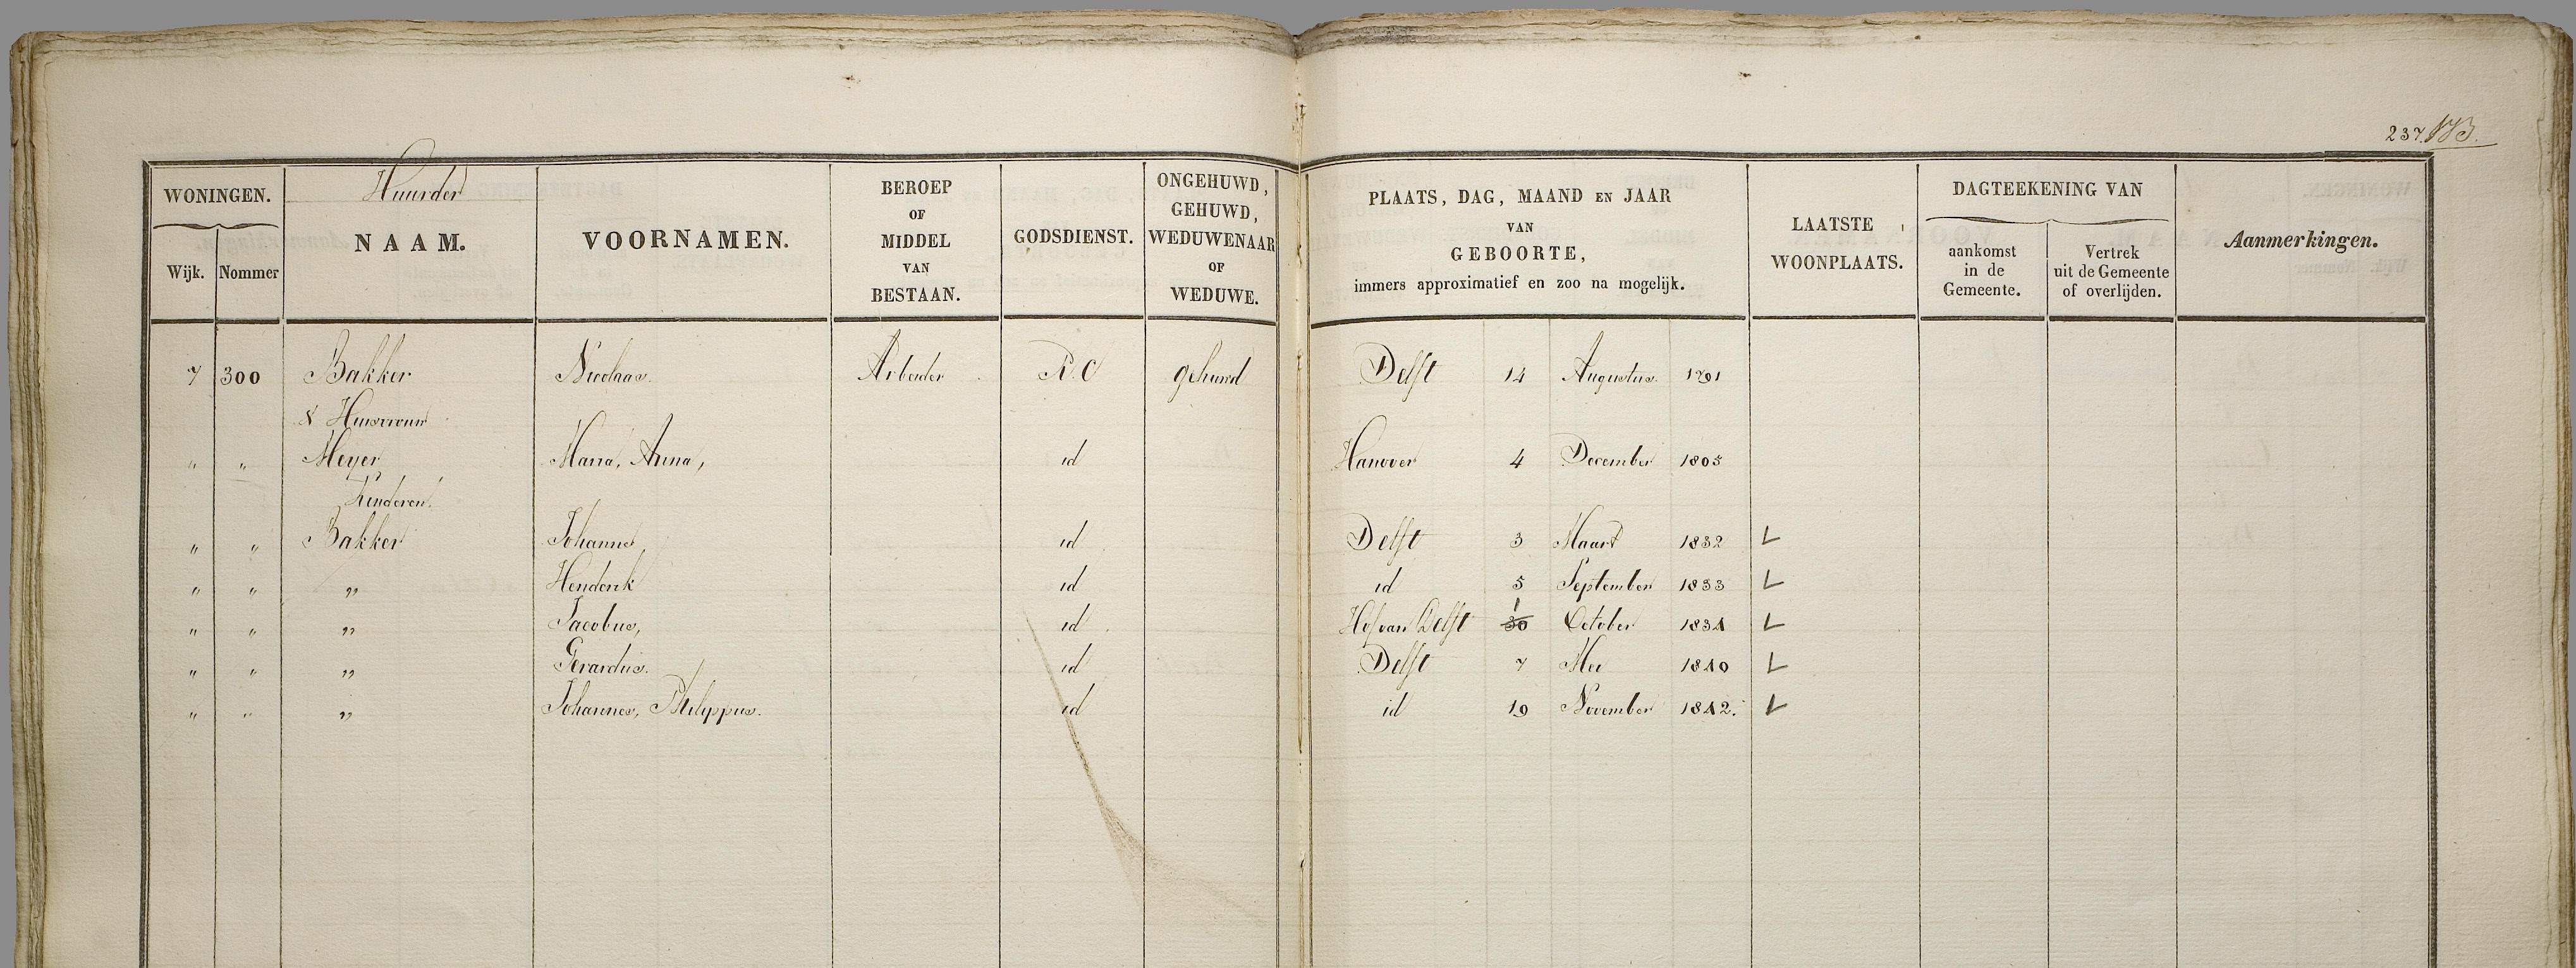 237
WONINGEN. Huurder BEROEP OF MIDDEL VAN BESTAAN. GODSDIENST. ONGEHUWD, GEHUWD, WEDUWENAAR OF WEDUWE. PLAATS, DAG, MAAND EN JAAR VAN GEBOORTE, immers approximatief en zoo na mogelijk. LAATSTE WOONPLAATS. DAGTEEKENING VAN Aanmerkingen.
Wijk. Nommer NAAM. VOORNAMEN. aankomst in de Gemeente. Vertrek uit de Gemeente of overlijden.
7 300 Bakker Nicolaas. Arbeider R.C gehuwd Delft 14 Augustus. 1791
& Huisvrouw
" " Meyer Maria, Anna, id Hanover 4 December 1805
Kinderen.
" " Bakker Johanna id Delft 3 Maart 1832
" " " Henderik id id 5 September 1833
" " " Jacobus, id Hof van Delft 30 1 October 1834
" " " Gerardus. id Delft 7 Mei 1840
" " " Johannes, Philippus. id id 19 November 1842.